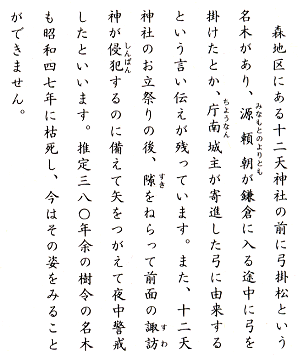 森地区にある十二天神社の前に弓掛松という
名木があり、源頼朝が鎌倉に入る途中に弓を
掛けたとか、庁南城主が寄進した弓に由来する
という言い伝えが残っています。また、十二天
神社のお立祭りの後、隙をねらって前面の諏訪
神が侵犯するのに備えて矢をつがえて夜中警戒
したといいます。推定三八〇年余の樹令の名木
も昭和四七年に枯死し、今はその姿をみること
ができません。